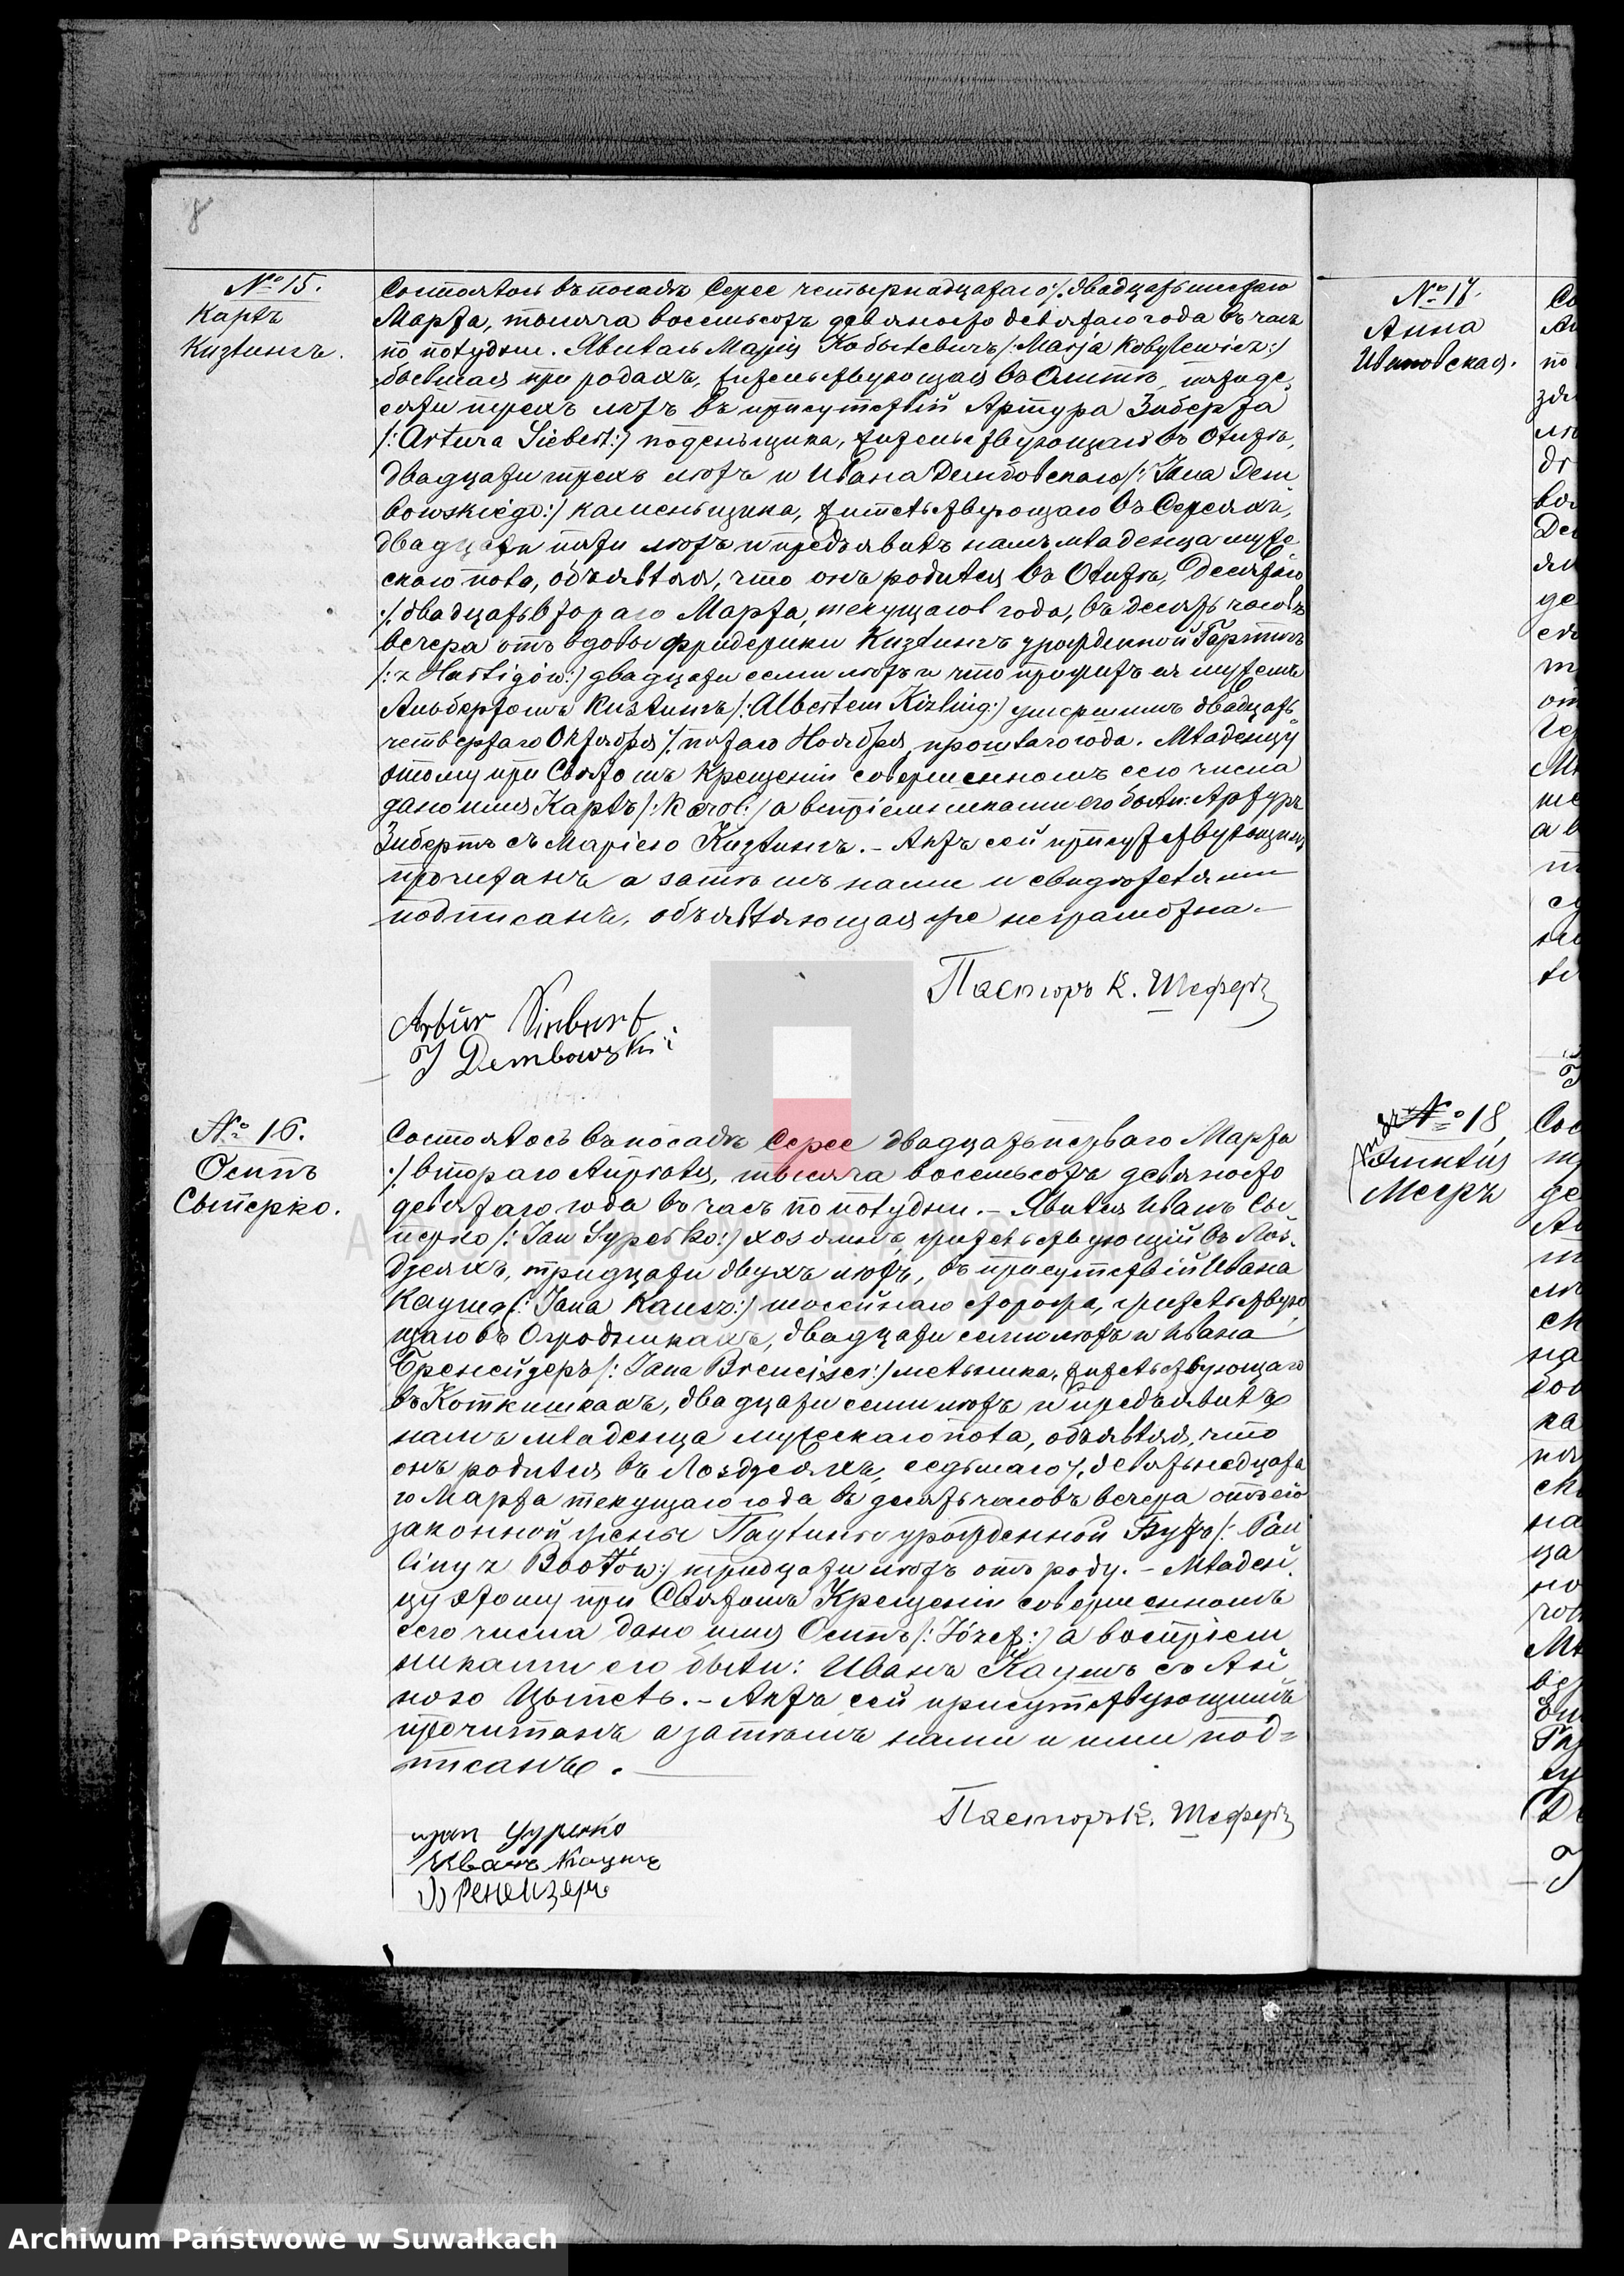 8
№ 15.
Карлъ
Кизлингъ.
Состоялось въ посадѣ Серее четырнадцатаго /. двадцать шестаго
Марта, тысяча восемьсотъ девяносто девятаго года въ часъ
по полудни. Явилась Марія Кобылевичъ /: Marja Kobylewicz :/
бывшая при родахъ, жительствующая въ Олитѣ, пятиде-
сяти трехъ лѣтъ въ присутствіи Артура Зиберта
/: Artura Siebert :/ поденьщика, жительствующаго въ Олитѣ,
двадцати трехъ лѣтъ и Ивана Дембовскаго /: Jana Dem
bowskiego :/ каменьщика, жительствующаго въ Сереяхъ,
двадцати пяти лѣтъ и предъявилъ намъ младенца муже-
скаго пола, объявляя, что онъ родился въ Олитѣ, Десятаго
./. двадцать втораго Марта, текущаго года, въ десять часовъ
вечера отъ вдовы Фридерики Кизлингъ урожденной Гартигъ
/: z Hartigów :/ двадцати семи лѣтъ и что прижитъ ея мужемъ
Альбертомъ Кизлингъ /: Albertem Kizling :/ умершимъ двадцать
четвертаго Октября /. пятаго Ноября прошлаго года. Младенцу
этому при Святомъ Крещеніи совершенномъ сего числа
дано имя Карлъ /: Karol :/ а воспріемниками его были: Артуръ
Зибертъ съ Маріею Кизлингъ. - Актъ сей присутствующимъ
прочитанъ а затѣмъ нами и свидѣтелями
подписанъ, объявляющая же неграмотна. -
Пасторъ К. Шеферъ
Artur Siebert
J Dembowski
№ 16.
Осипъ
Сыперко.
Состоялось въ посадѣ Серее двадцать перваго Марта
./. втораго Апрѣля, тысяча восемьсотъ девяносто
девятаго года въ часъ по полудни. - Явился Иванъ Сы-
перко /: Jan Syperko :/ хозяинъ, жительствующій въ Лоз-
дзеяхъ, тридцати двухъ лѣтъ, въ присутствіи Ивана
Каушъ /: Jana Kausz :/ шоссейнаго сторожа, жительствую
щаго въ Огродникахъ, двадцати семи лѣтъ и Ивана
Бренейзеръ /: Jana Breneizer :/ мельника, жительствующаго
въ Коткишкахъ, двадцати семи лѣтъ и предъявилъ
намъ младенца мужескаго пола, объявляя, что
онъ родился въ Лоздзеяхъ, седьмаго /. девятьнадцата
го Марта текущаго года въ десять часовъ вечера отъ его
законной жены Паулины урожденной Бутъ /: Pau
liny z Bootów :/ тридцати лѣтъ отъ роду. - Младен
цу этому при Святомъ Крещеніи совершенномъ
сего числа дано имя Осипъ /: Józef :/ а воспріем
никами его были: Иванъ Каушъ съ Ан
ною Цыпель. - Актъ сей присутствующимъ
прочитанъ а затѣмъ нами и ими под=
писанъ. -
Пасторъ К. Шеферъ
Иванъ Каушъ
Бренейзеръ
№ 17.
Анна
Ивановская.
№ 18.
Мееръ
Archiwum Państwowe w Suwałkach